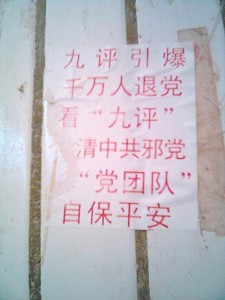 九评引爆
千万人退党
看“九评”
清中共邪党
“党团队”
自保平安